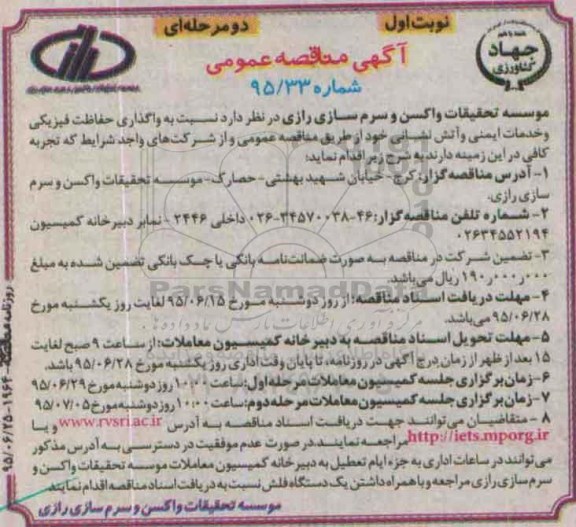 نوبت اول
دو مرحله‌ای
جهاد
کشاورزی
آگهی مناقصه عمومی
شماره ۹۵/۳۳
موسسه تحقیقات واکسن و سرم سازی رازی در نظر دارد نسبت به واگذاری حفاظت فیزیکی
وخدمات ایمنی وآتش نشانی خود از طریق مناقصه عمومی و از شرکت‌های واجد شرایط که تجربه
کافی در این زمینه دارند به شرح زیر اقدام نماید:
۱- آدرس مناقصه گزار: کرج- خیابان شهید بهشتی- حصارک- موسسه تحقیقات واکسن و سرم
سازی رازی.
۲- شماره تلفن مناقصه گزار: ۴۶-۳۴۵۷۰۰۳۸-۰۲۶ داخلی ۲۴۴۶ - نمابر دبیرخانه کمیسیون
۰۲۶۳۴۵۵۲۱۹۴
۳- تضمین شرکت در مناقصه به صورت ضمانت‌نامه بانکی یا چک بانکی تضمین شده به مبلغ
۱۹۰٫۰۰۰٫۰۰۰ ریال می‌باشد.
۴- مهلت دریافت اسناد مناقصه: از روز دوشنبه مورخ ۹۵/۰۶/۱۵ لغایت روز یکشنبه مورخ
۹۵/۰۶/۲۸ می‌باشد.
۵- مهلت تحویل اسناد مناقصه به دبیر خانه کمیسیون معاملات: از ساعت ۹ صبح لغایت
۱۵ بعد از ظهر از زمان درج آگهی در روزنامه، تا پایان وقت اداری روز یکشنبه مورخ ۹۵/۰۶/۲۸ باشد.
۶- زمان برگزاری جلسه کمیسیون معاملات مرحله اول: ساعت ۱۰:۰۰ روز دوشنبه مورخ ۹۵/۰۶/۲۹
۷- زمان برگزاری جلسه کمیسیون معاملات مرحله دوم: ساعت ۱۰:۰۰ روز دوشنبه مورخ ۹۵/۰۷/۰۵
۸- متقاضیان می‌توانند جهت دریافت اسناد مناقصه به آدرس www.rvsri.ac.ir و یا
http://iets.mporg.ir مراجعه نمایند در صورت عدم موفقیت در دسترسی به آدرس مذکور
می‌توانند در ساعات اداری به جزء ایام تعطیل به دبیر خانه کمیسیون معاملات موسسه تحقیقات واکسن و
سرم سازی رازی مراجعه و با همراه داشتن یک دستگاه فلش نسبت به دریافت اسناد مناقصه اقدام نمایند.
موسسه تحقیقات واکسن و سرم سازی رازی
ParsNamadData